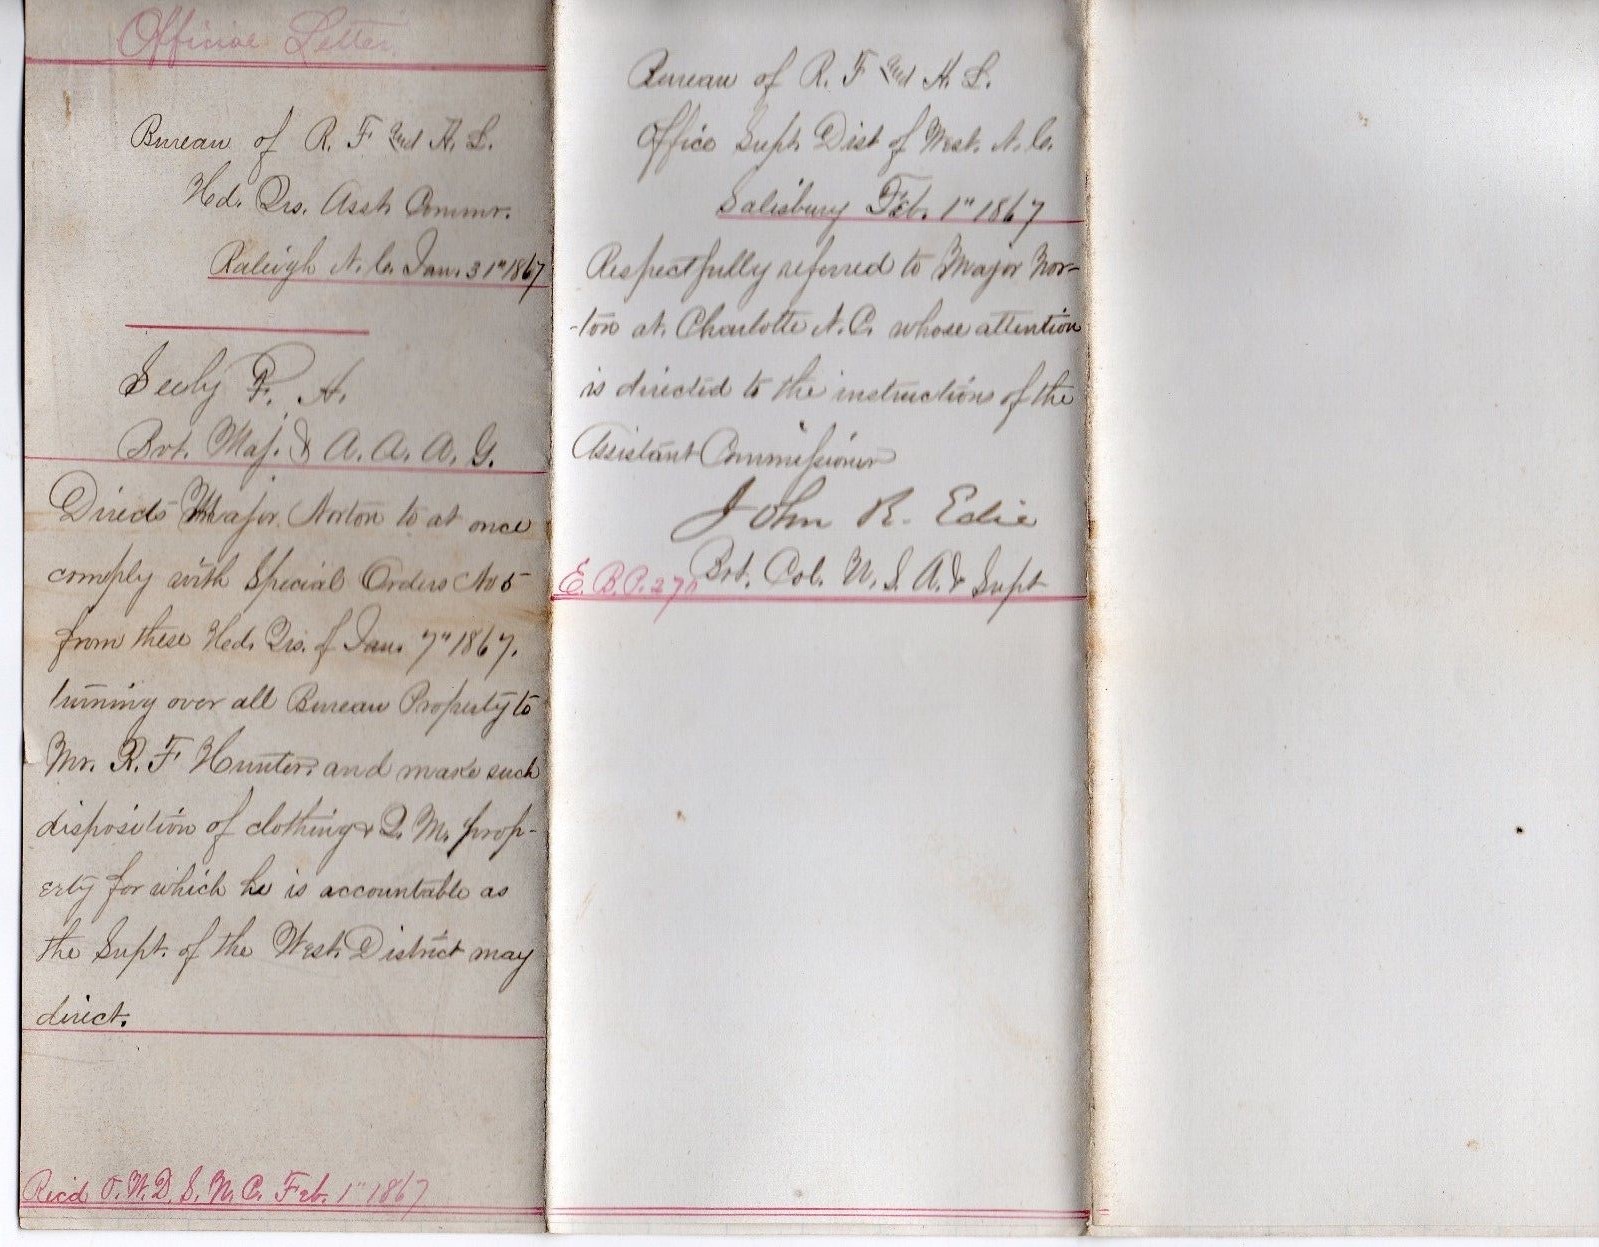 Official Letter.
Bureau of R. F and A. L.
Hd. Qrs. Asst. Commr.
Raleigh N. C. Jan. 31" 1867
F. A.
Bvt. Maj. & A. A. A. G.
Directs Major Norton to at once
comply with Special Orders No 5
from these Hd. Qrs. of Jan. 7" 1867,
turning over all Bureau Property to
Mr. R. F Hunter, and make such
disposition of clothing & Q. M. prop-
erty for which he is accountable as
the Supt. of the West. District may
direct.
Recd O. W. D. S. N. C. Feb. 1" 1867
Bureau of R. F and A. L.
Office Supt. Dist of West. N. C.
Salisbury Feb. 1" 1867
Respectfully referred to Major Nor-
-ton at Charlotte N. C. whose attention
is directed to the instructions of the
Assistant Commissioner
John R. Edie
Bvt. Col. U. S. A. & Supt
E. B. P. 270